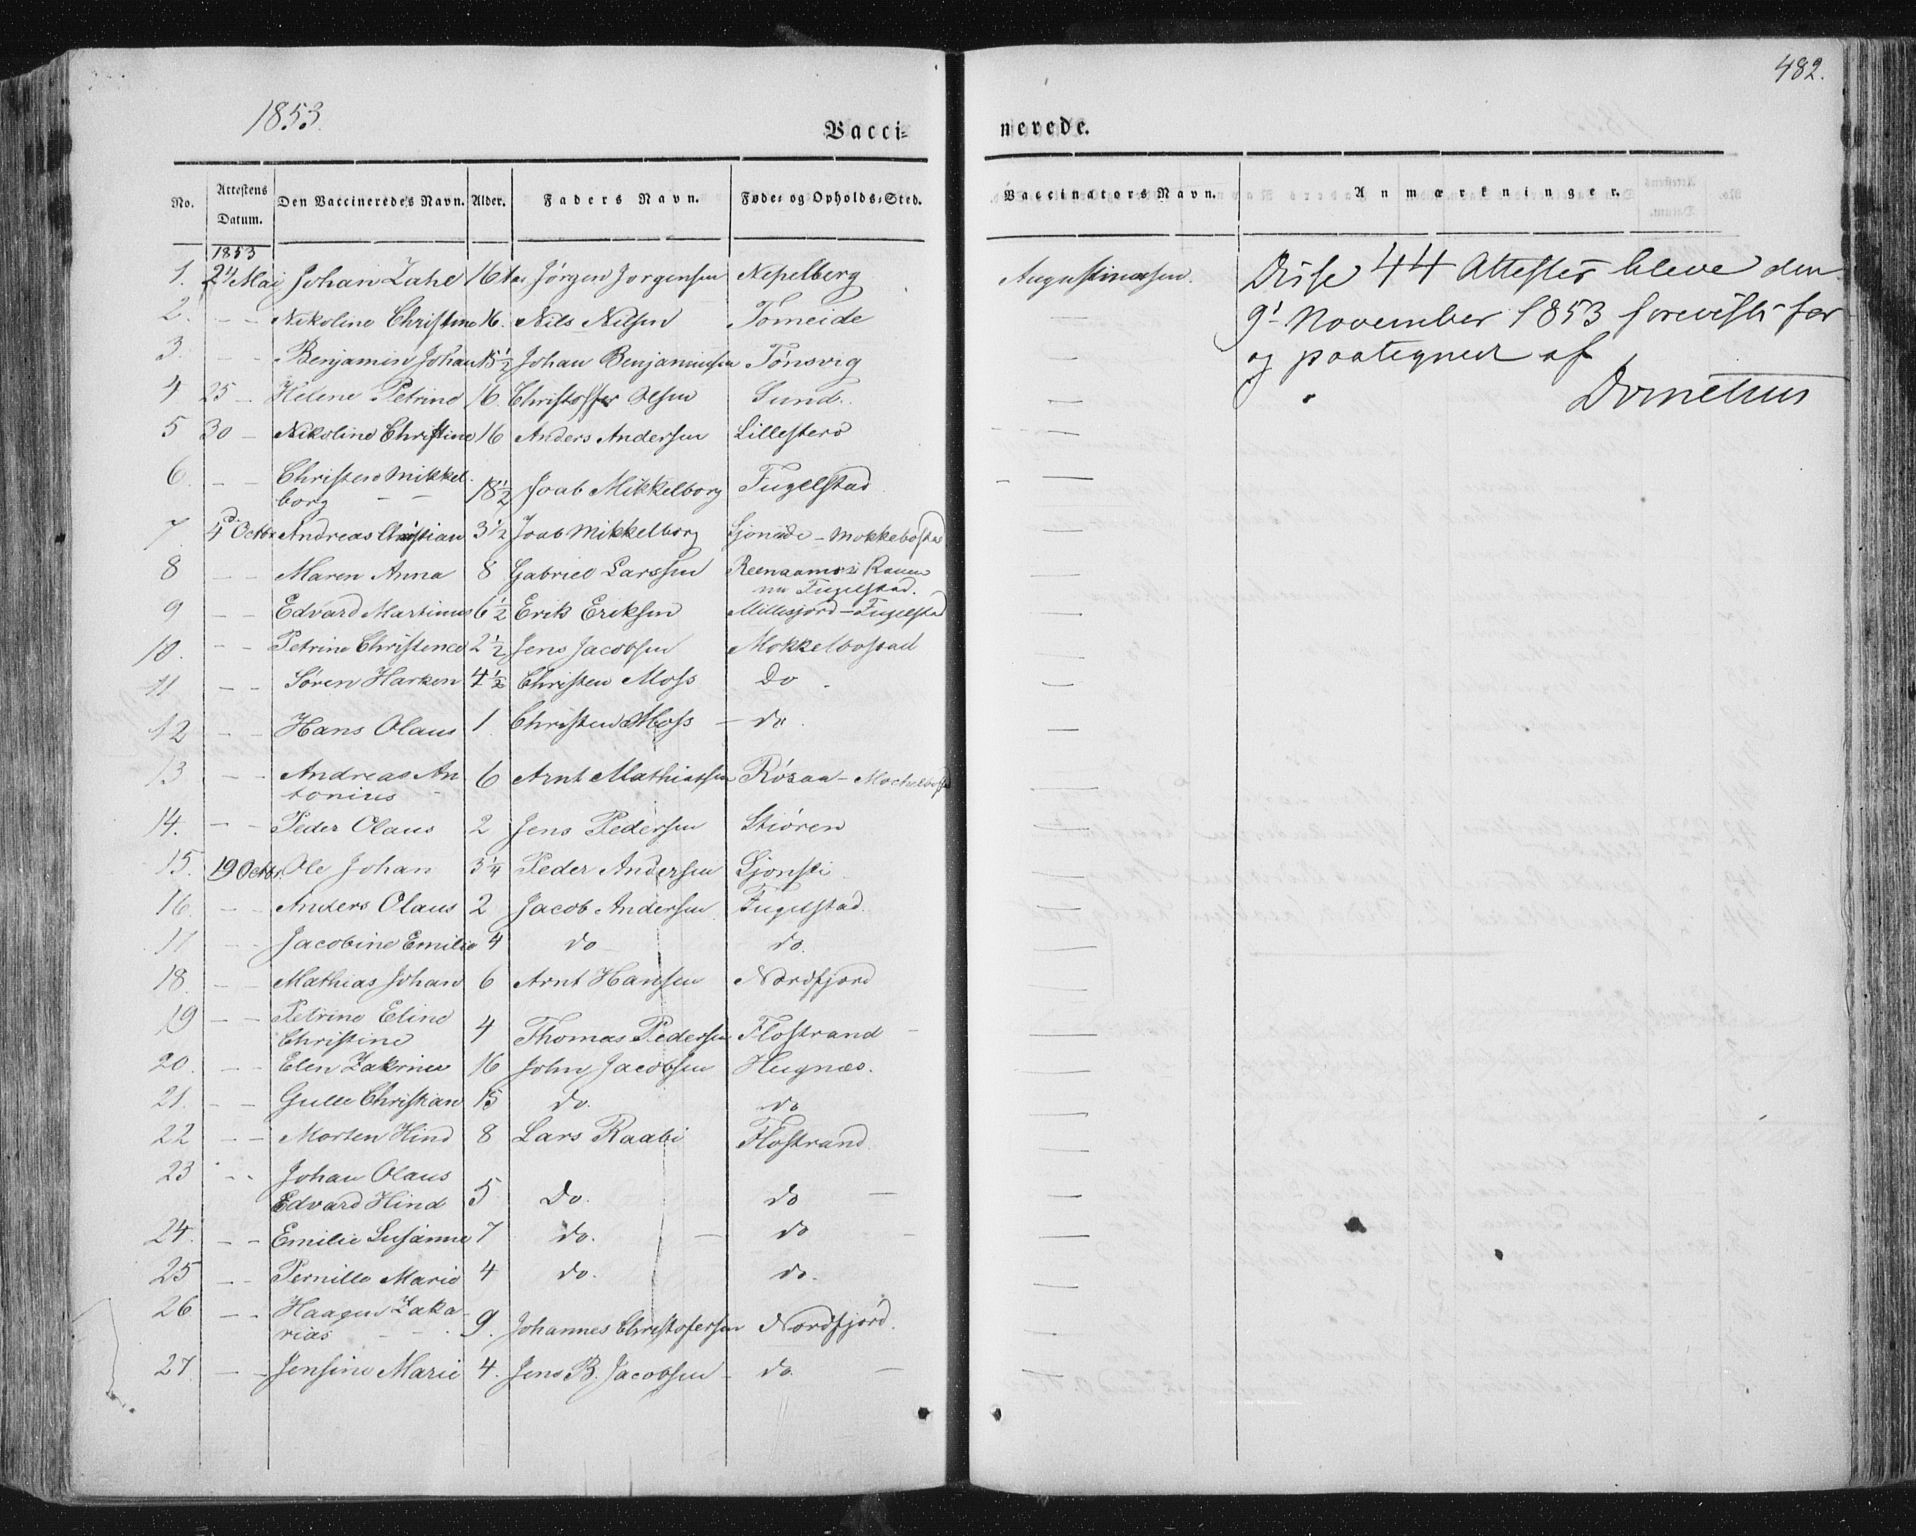 1853.
482.
Vacci-
nerede.
No.
Attestens Datum.
Den Vaccineredes Navn.
Alder.
Faders Navn.
Føde- og Opholds-Sted.
Vaccinators Navn.
Anmærkninger.
1853
1. 24 Mai Johan Zahl 16 Jørgen Jørgensen Nepelberg Augustinussen.
2. - - Nikoline Christine 16. Nils Nilsen Tømeide —
3. - - Benjamin Johan 15½ Johan Benjaminsen Tønsvig —
4 25 - Helene Petrine 16. Christoffer Olsen Sund. —
5 30 - Nikoline Christine 16 Anders Andersen Lillesterø —
6. - - Christen Mikkel-
borg - - 18½ Joab Mikkelborg Fugelstad —
7. 4d Octbr Andreas Christian 3½ Joab Mikkelborg Sjoneide - Mokkebostad —
8 - - Maren Anna 8 Gabriel Larssen Reenaamoe i Ranen
nu Fugelstad. —
9 - - Edvard Martinus 6½ Erik Eriksen Millesjord - Fugelstad —
10. - - Petrine Christence 2½ Jens Jacobsen Mokkelbostad —
11 - - Søren Harken 4½ Christen Moss Do. —
12 - - Hans Olaus 1. Christen Moss - do. —
13 - - Andreas An
tonius - 6 Arnt Mathiassen Røsaa - Mockelbostad —
14. - - Peder Olaus 2 Jens Pedersen Stiøren —
15. 19 Octbr. Ole Johan 3¼ Peder Andersen Sjonsti —
16. - - Anders Olaus 2 Jacob Andersen Fugelstad. —
17 - - Jacobine Emilie 4 do - do. —
18. - - Mathias Johan 6 Arnt Hansen Nordfjord —
19 - - Petrine Eline
Christine 4 Thomas Pedersen Flostrand - —
20. - - Elen Zakrine 16 John Jacobsen Hugnæs. —
21. - - Gulle Christian 15 do. do —
22 - - Morten Hind 8 Lars Raabi Flostrand. —
23 - - Johan Olaus
Edvard Hind 5 Do. do - —
24. - - Emilie Susanne 7 do. - do - —
25 - - Pernille Marie 4 do. do. —
26 - - Haagen Zaka-
rias - - 9. Johannes Christofersen Nordfjord. —
27. - - Jensine Marie 4. Jens B. Jacobsen - do. - —
Disse 44 Attester bleve den
9d November 1853 forevist for
og paategnet af